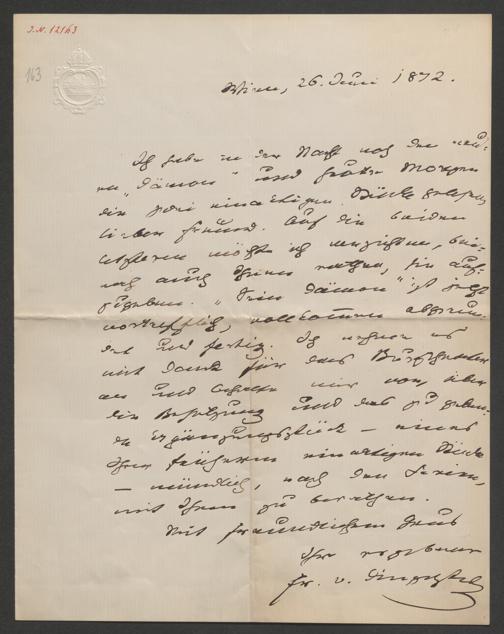 J.N. 12163
163
Wien, 26. Juni 1872.
Ich habe in der Nacht noch den neu-
en „Dämon" und heute Morgen
die zwei einaktigen Stücke gelesen,
lieber Freund. Auf die beiden
letzteren möchte ich verzichten, bei-
nah auch Ihnen rathen, sie auf-
zugeben. „Sein Dämon" ist jetzt
vortrefflich, vollkommen abgerun-
det und fertig. Ich nehme es
mit Dank für das Burgtheater
an und behalte mir vor, über
die Besetzung und das zu geben-
de Ergänzungsstück – eines
Ihrer früheren einaktigen Stücke
– mündlich, nach den Ferien,
mit Ihnen zu berathen.
Mit freundlichem Gruß
Ihr ergebener
Fr. v. Dingelstedt